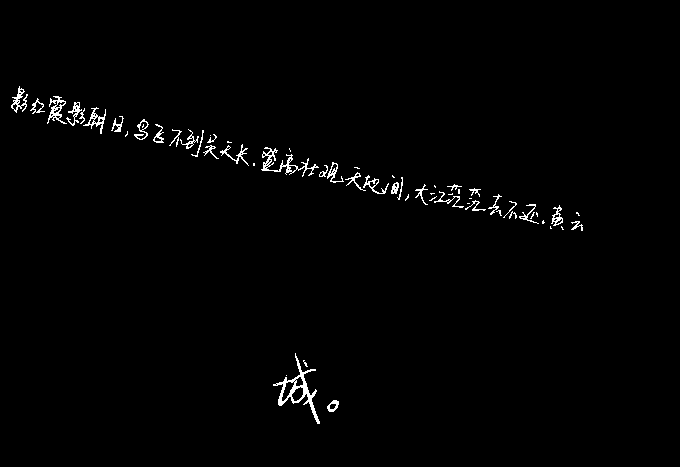 影红霞影朝日,鸟飞不到吴天长.登高壮观天地间,大江茫茫去不还.黄云
城。